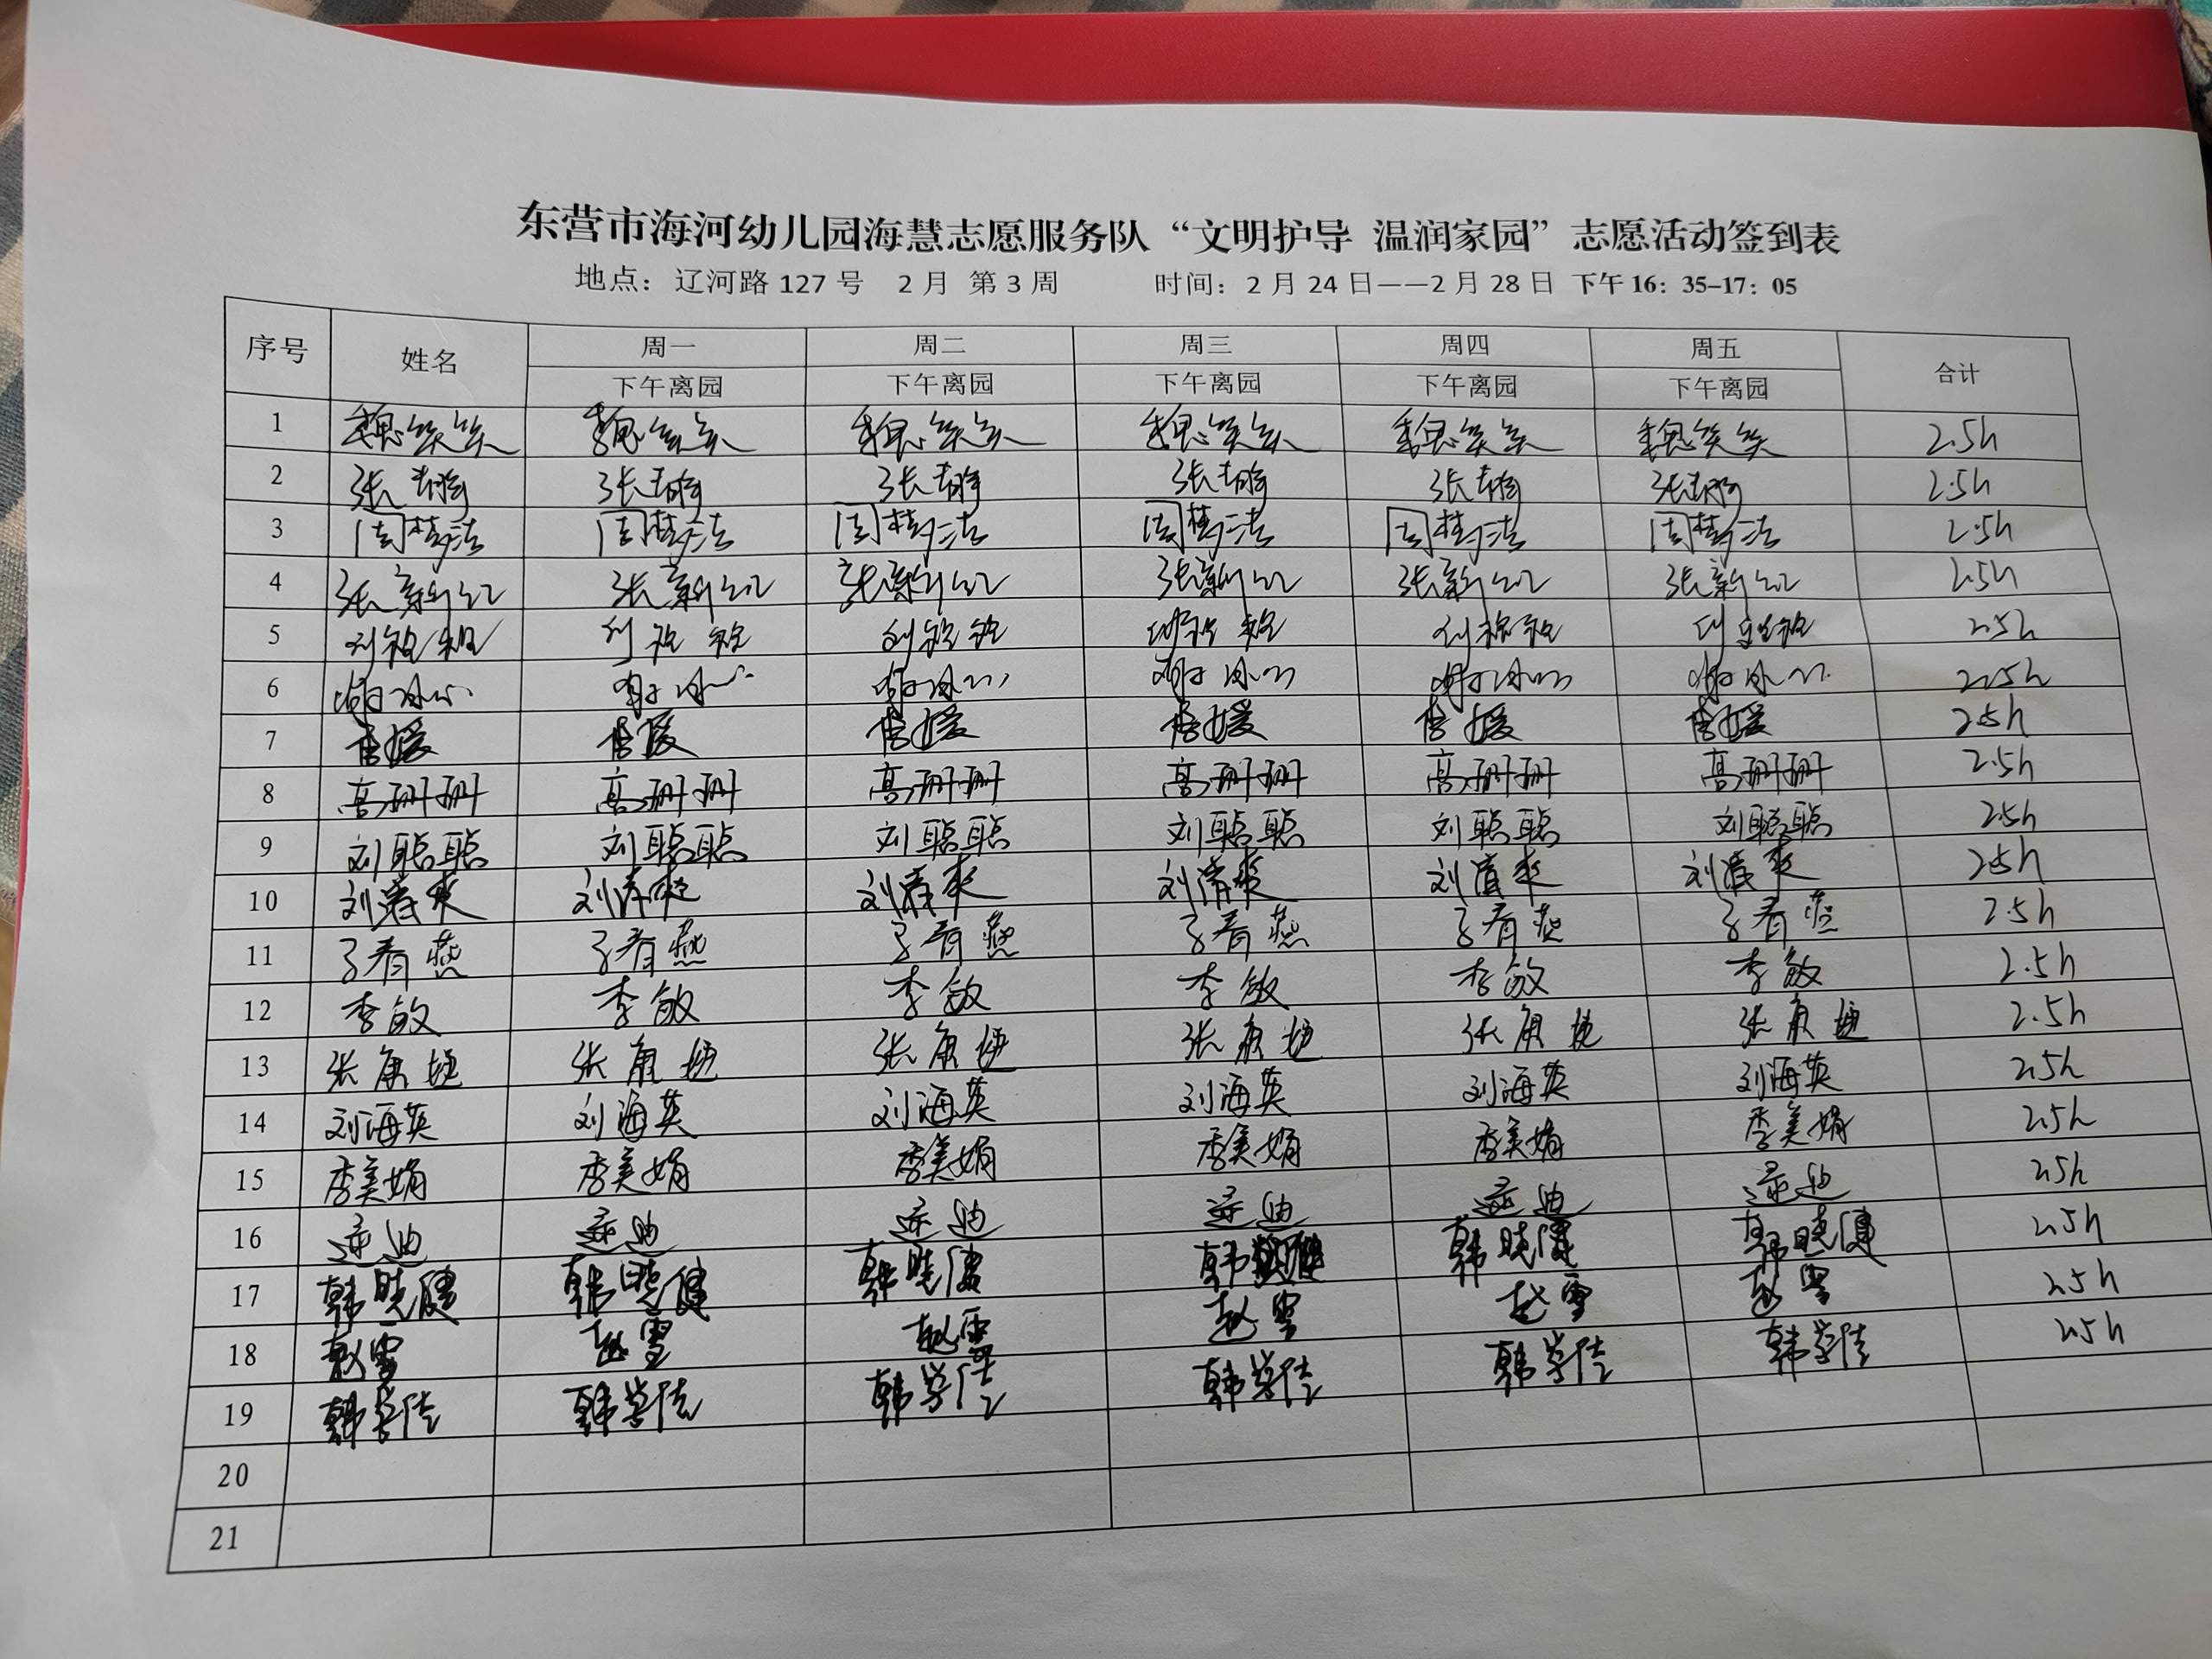 东营市海河幼儿园海慧志愿服务队“文明护导 温润家园”志愿活动签到表
地点：辽河路 127 号 2 月 第 3 周 时间：2 月 24 日——2 月 28 日 下午 16：35-17：05
序号 姓名 周一 周二 周三 周四 周五 合计
下午离园 下午离园 下午离园 下午离园 下午离园
1 魏笑笑 魏笑笑 魏笑笑 魏笑笑 魏笑笑 魏笑笑 2.5h
2 张 张 张 张 张 张 2.5h
3 周梦洁 周梦洁 周梦洁 周梦洁 周梦洁 周梦洁 2.5h
4 张新红 张新红 张新红 张新红 张新红 张新红 2.5h
5 刘 刘 刘 刘 刘 刘 2.5h
6 谢冰心 谢冰心 谢冰心 谢冰心 谢冰心 谢冰心 2.5h
7 媛 媛 媛 媛 媛 媛 2.5h
8 高珊珊 高珊珊 高珊珊 高珊珊 高珊珊 高珊珊 2.5h
9 刘聪聪 刘聪聪 刘聪聪 刘聪聪 刘聪聪 刘聪聪 2.5h
10 刘清爽 刘清爽 刘清爽 刘清爽 刘清爽 刘清爽 2.5h
11 燕 燕 燕 燕 燕 燕 2.5h
12 李敏 李敏 李敏 李敏 李敏 李敏 2.5h
13 张康捷 张康捷 张康捷 张康捷 张康捷 张康捷 2.5h
14 刘海英 刘海英 刘海英 刘海英 刘海英 刘海英 2.5h
15 李美娟 李美娟 李美娟 李美娟 李美娟 李美娟 2.5h
16 迪 迪 迪 迪 迪 迪 2.5h
17 韩晓健 韩晓健 韩晓健 韩 韩晓健 韩晓健 2.5h
18 赵雪 赵雪 赵雪 赵雪 赵雪 赵雪 2.5h
19 韩学佳 韩学佳 韩学佳 韩学佳 韩学佳 韩学佳 2.5h
20
21